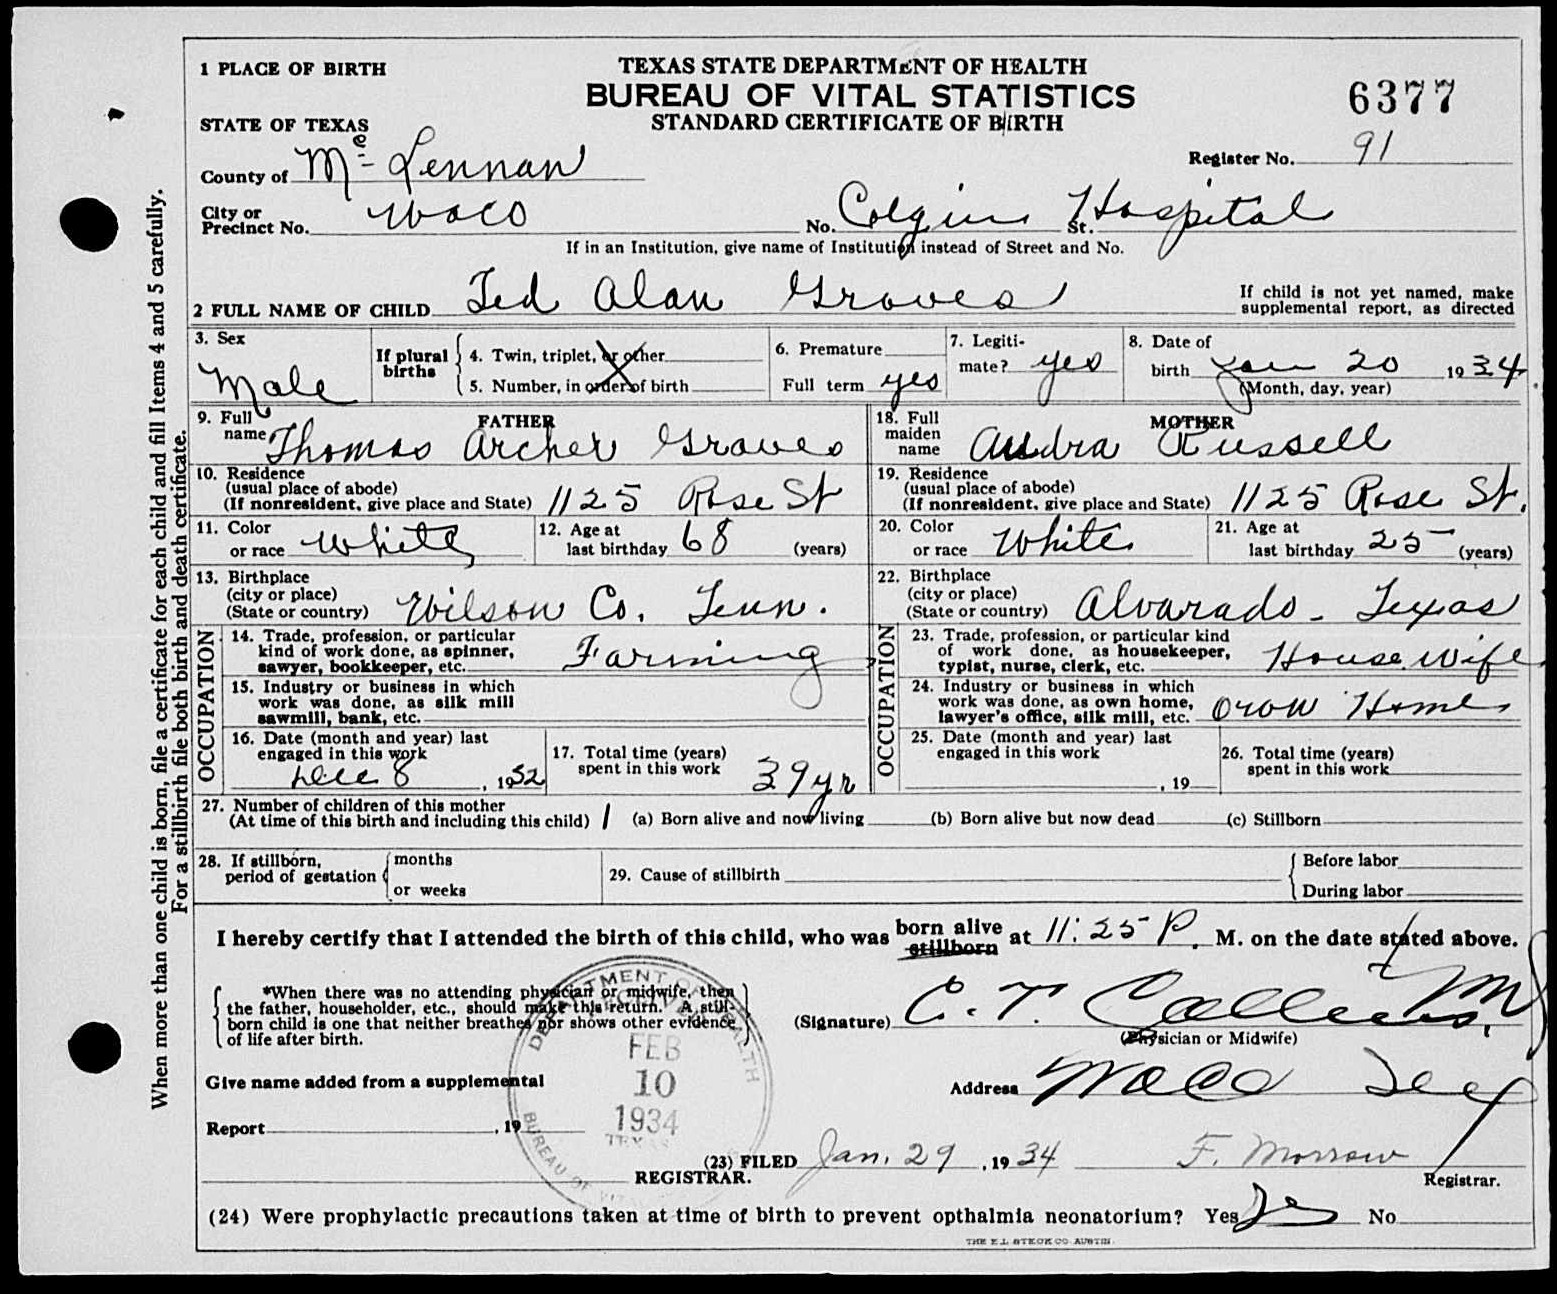 1 PLACE OF BIRTH
TEXAS STATE DEPARTMENT OF HEALTH
BUREAU OF VITAL STATISTICS
STANDARD CERTIFICATE OF BIRTH
6377
STATE OF TEXAS
Register No. 91
County of Mc Lennan
City or Precinct No. Waco No. Colgin Hospital St.
If in an Institution, give name of Institution instead of Street and No.
2 FULL NAME OF CHILD Ted Alan Graves
If child is not yet named, make supplemental report, as directed
3. Sex Male
If plural births { 4. Twin, triplet, or other
5. Number, in order of birth
6. Premature
Full term yes
7. Legitimate? yes
8. Date of birth Jan 20 1934
(Month, day, year)
FATHER
9. Full name Thomas Archer Graves
10. Residence (usual place of abode) (If nonresident, give place and State) 1125 Rose St
11. Color or race White
12. Age at last birthday 68 (years)
13. Birthplace (city or place) (State or country) Wilson Co, Tenn.
OCCUPATION
14. Trade, profession, or particular kind of work done, as spinner, sawyer, bookkeeper, etc. Farming
15. Industry or business in which work was done, as silk mill sawmill, bank, etc.
16. Date (month and year) last engaged in this work Dec 8, 1932
17. Total time (years) spent in this work 39 yr
MOTHER
18. Full maiden name Audra Russell
19. Residence (usual place of abode) (If nonresident, give place and State) 1125 Rose St.
20. Color or race White
21. Age at last birthday 25 (years)
22. Birthplace (city or place) (State or country) Alvarado - Texas
OCCUPATION
23. Trade, profession, or particular kind of work done, as housekeeper, typist, nurse, clerk, etc. House Wife
24. Industry or business in which work was done, as own home, lawyer's office, silk mill, etc. Own Home
25. Date (month and year) last engaged in this work , 19
26. Total time (years) spent in this work
27. Number of children of this mother
(At time of this birth and including this child) 1 (a) Born alive and now living (b) Born alive but now dead (c) Stillborn
28. If stillborn, period of gestation { months or weeks
29. Cause of stillbirth { Before labor
During labor
I hereby certify that I attended the birth of this child, who was born alive stillborn at 11:25 P. M. on the date stated above.
*When there was no attending physician or midwife, then
the father, householder, etc., should make this return. A still-
born child is one that neither breathes nor shows other evidence
of life after birth.
(Signature) C. T. Collins, MD
(Physician or Midwife)
Give name added from a supplemental
Address Waco Tex
Report , 19
REGISTRAR.
(23) FILED Jan. 29, 1934 F. Morrow
Registrar.
DEPARTMENT HEALTH
FEB
10
1934
TEXAS
BUREAU OF VITAL
(24) Were prophylactic precautions taken at time of birth to prevent opthalmia neonatorium? Yes Yes No
THE E.L. STECK CO. AUSTIN.
When more than one child is born, file a certificate for each child and fill Items 4 and 5 carefully.
For a stillbirth file both birth and death certificate.